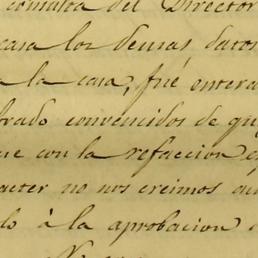 consulta del Director
casa los demas datos
a la casa, fué entera
brado convencidos de qu
ue con la refaccion
acter no nos creimos au
do à la aprobacion